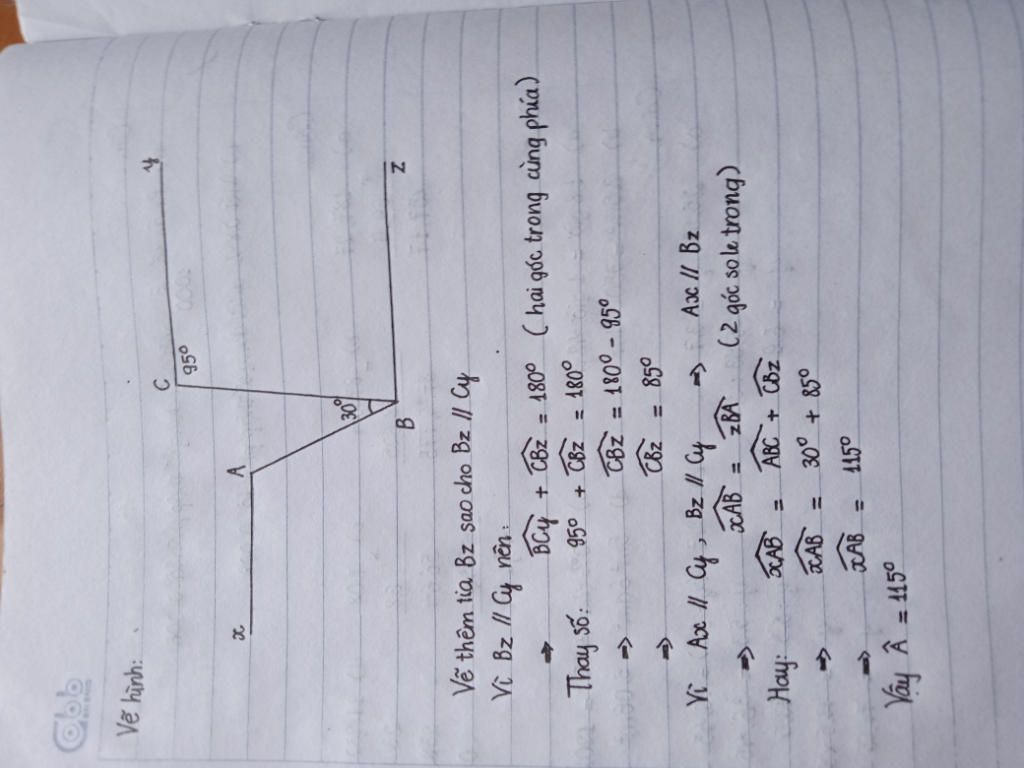 Cbb
Vẽ hình:
x
A
C
y
95°
30°
B
z
Vẽ thêm tia Bz sao cho Bz // Cy
Vì Bz // Cy nên:
=> BCy + CBz = 180° (hai góc trong cùng phía)
Thay số: 95° + CBz = 180°
=> CBz = 180° - 95°
=> CBz = 85°
Vì Ax // Cy, Bz // Cy => Ax // Bz
=> xAB = zBA (2 góc so le trong)
Hay: xAB = ABC + CBz
=> xAB = 30° + 85°
=> xAB = 115°
Vậy Â = 115°